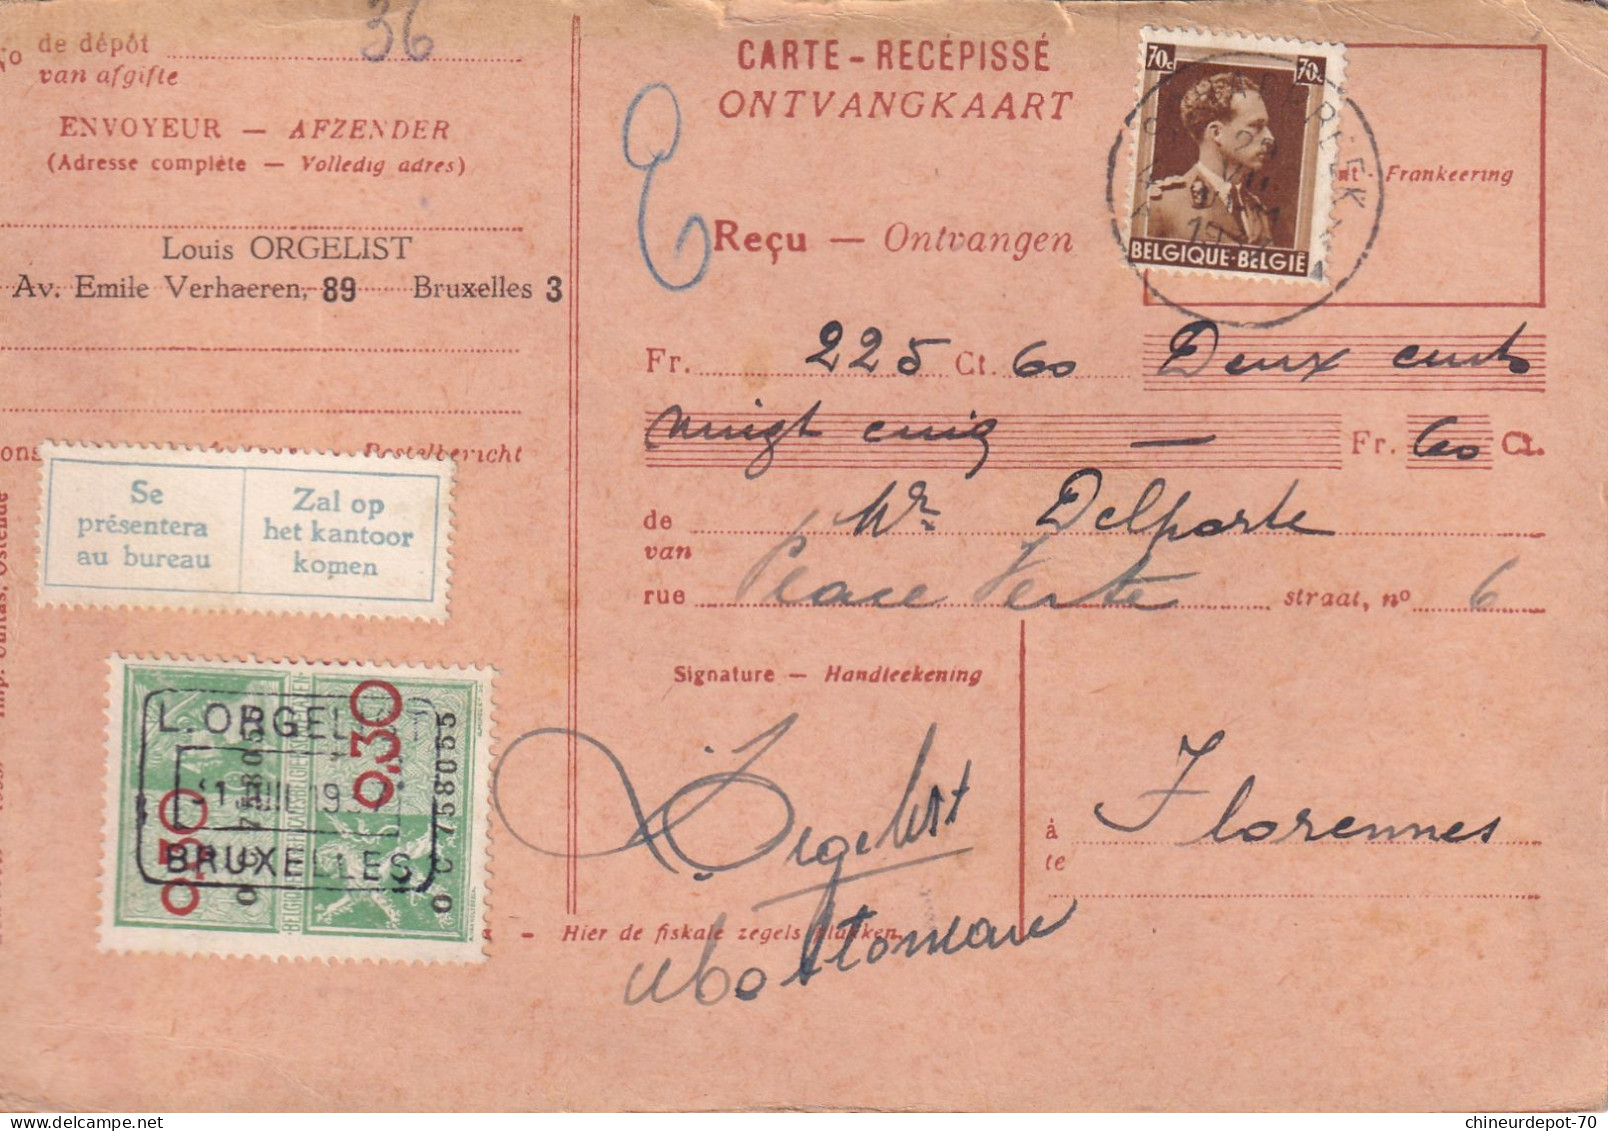 No de dépôt
van afgifte
36
ENVOYEUR — AFZENDER
(Adresse complète — Volledig adres)
Louis ORGELIST
Av. Emile Verhaeren, 89 Bruxelles 3
Postelbericht
Se
présentera
au bureau
Zal op
het kantoor
komen
0.30
0.30
L. ORGELIST
BRUXELLES
0758055
CARTE - RECÉPISSÉ
ONTVANGKAART
70c 70c
BELGIQUE-BELGIË
Frankeering
Reçu — Ontvangen
Fr. 225 Ct. 60 Deux cents
vingt cinq — Fr. 60 Ct.
de Mr Delporte
van
rue Place Verte straat, no 6
Signature — Handteekening
Orgelist
à Florennes
te
- Hier de fiskale zegels plakken.
chineurdepot-70